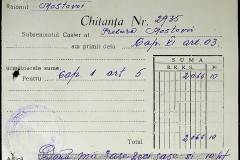 Raionul Rostovi
Chitanța Nr. 2935
Subsemnatul Casier al Preturei Rostovi
am primit dela Cap. VI art. 03.
următoarele sume:
SUMA
R.K.K.S.
Pentru Cap 1 art 5
2.066 10
TOTAL 2.066 10
Două mii șase zeci șase și 10